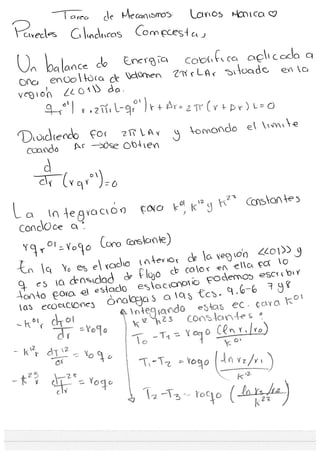 Tarea de Mecanismos Larios Monica ♡
Paredes Cilindricas Compuestas
Un balance de Energía calorifica aplicada a
una envoltura de volumen 2πrLΔr situado en la
región <<01>> da.
q_r^01|r · 2πrL - q_r^01|r+Δr = 2π(r+Δr)L = 0
Dividiendo por 2πLΔr y tomando el limite
cuando Δr →0 se obtien
d/dr (rqr^01) = 0
La integración para k^01, k^12 y k^23 constantes
conduce a:
rqr^01 = r0q0 (una constante)
En la r0 es el radio interior de la región <<01>> y
q es la densidad de flujo de calor en ella por lo
tanto para el estado estacionario podemos escribir
las ecuaciones análogas a las Ecs. 9.6-6 7 y 8
Integrando estas ec. para k01
k12 k23 constantes:
-k^01 r dT^01/dr = r0q0
T0 - T1 = r0q0 (ln r1/r0 / k^01)
-k^12 r dT^12/dr = r0q0
T1 - T2 = r0q0 (ln r2/r1 / k^12)
-k^23 r dT^23/dr = r0q0
T2 - T3 = r0q0 (ln r3/r2 / k^23)